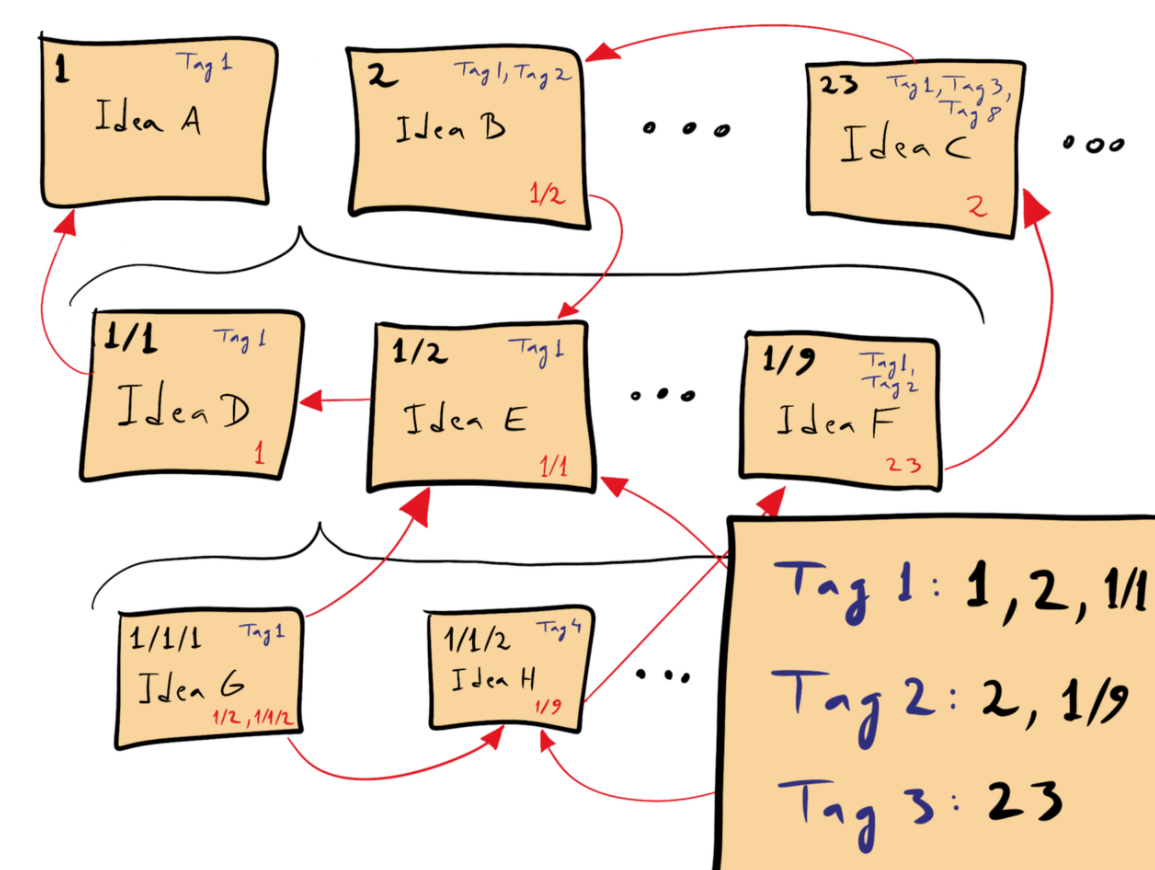 1
Tag 1
Idea A
2
Tag 1, Tag 2
Idea B
1/2
23
Tag 1, Tag 3,
Tag 8
Idea C
2
1/1
Tag 1
Idea D
1
1/2
Tag 1
Idea E
1/1
1/9
Tag 1,
Tag 2
Idea F
23
1/1/1
Tag 1
Idea G
1/2, 1/1/2
1/1/2
Tag 4
Idea H
1/9
Tag 1: 1, 2, 1/1
Tag 2: 2, 1/9
Tag 3: 23